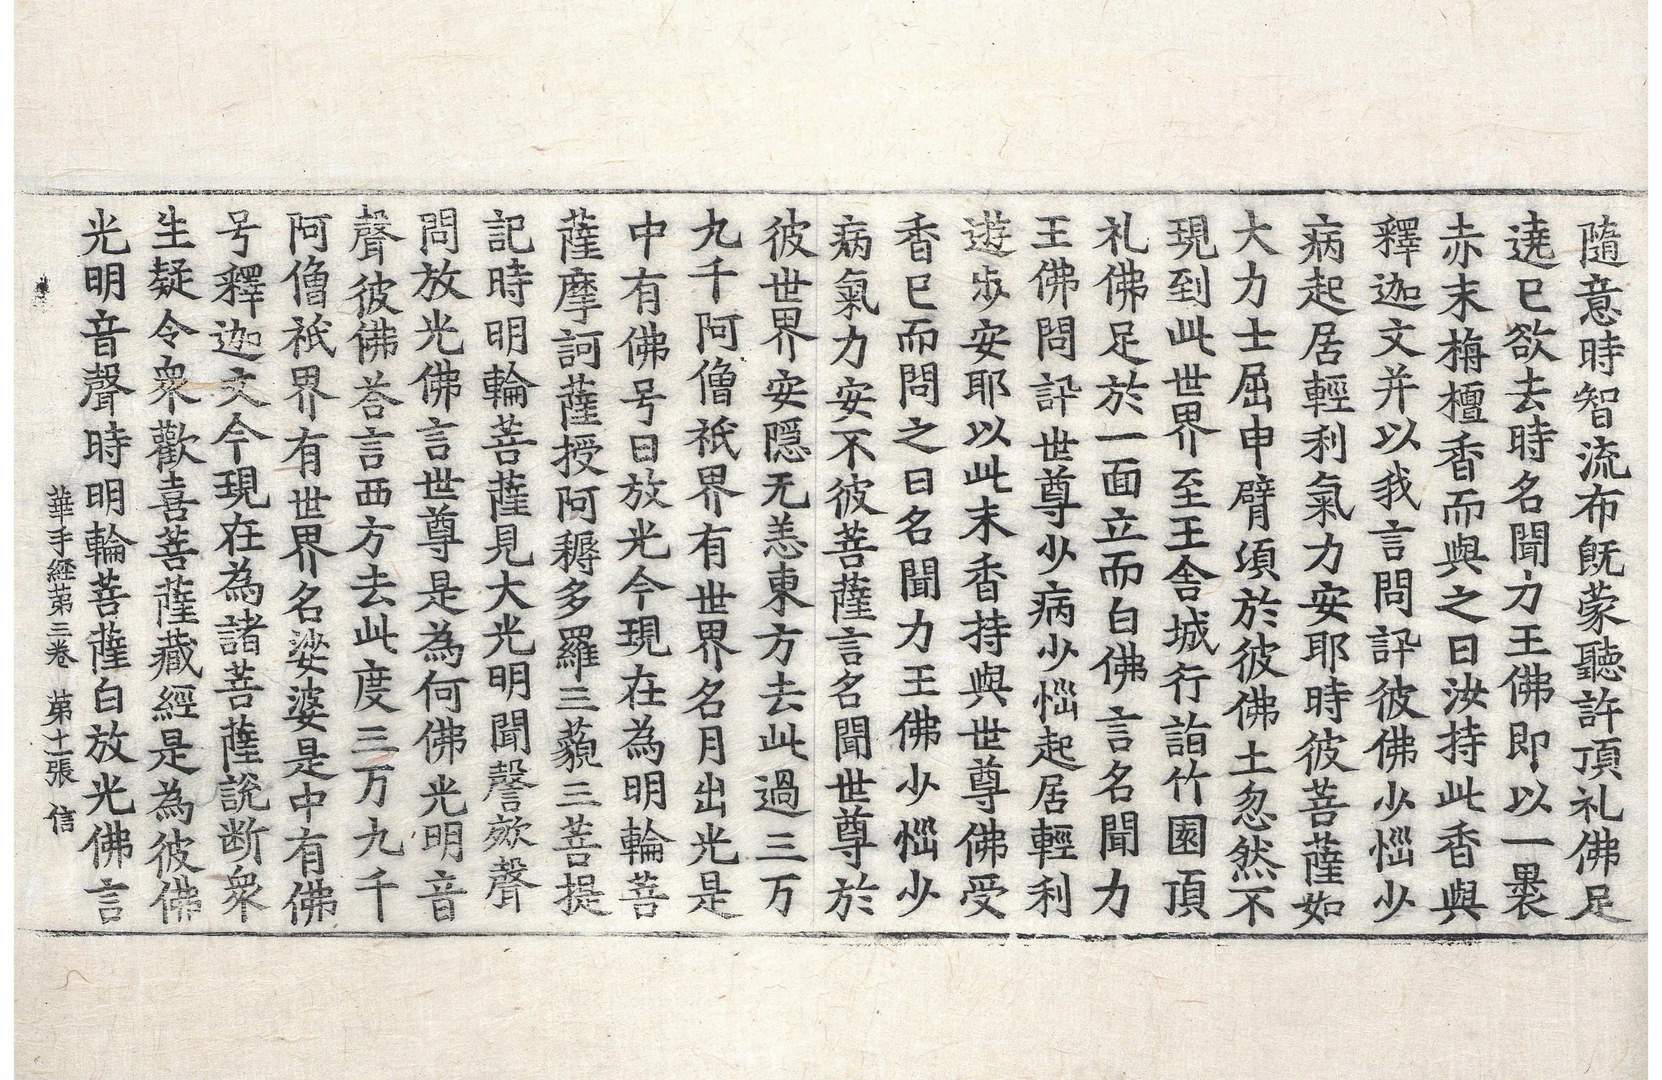 隨意時智流布旣蒙聽許頂礼佛足
遶已欲去時名聞力王佛即以一裹
赤末栴檀香而與之曰汝持此香與
釋迦文并以我言問訊彼佛少惱少
病起居輕利氣力安耶時彼菩薩如
大力士屈申臂頃於彼佛土忽然不
現到此世界至王舍城行詣竹園頂
礼佛足於一面立而白佛言名聞力
王佛問訊世尊少病少惱起居輕利
遊步安耶以此末香持與世尊佛受
香已而問之曰名聞力王佛少惱少
病氣力安不彼菩薩言名聞世尊於
彼世界安隱无恙東方去此過三万
九千阿僧祇界有世界名月出光是
中有佛号曰放光今現在為明輪菩
薩摩訶薩授阿耨多羅三藐三菩提
記時明輪菩薩見大光明聞謦欬聲
問放光佛言世尊是為何佛光明音
聲彼佛荅言西方去此度三万九千
阿僧祇界有世界名娑婆是中有佛
号釋迦文今現在為諸菩薩說断衆
生疑令衆歡喜菩薩藏經是為彼佛
光明音聲時明輪菩薩白放光佛言
華手經第三卷 第十張 信